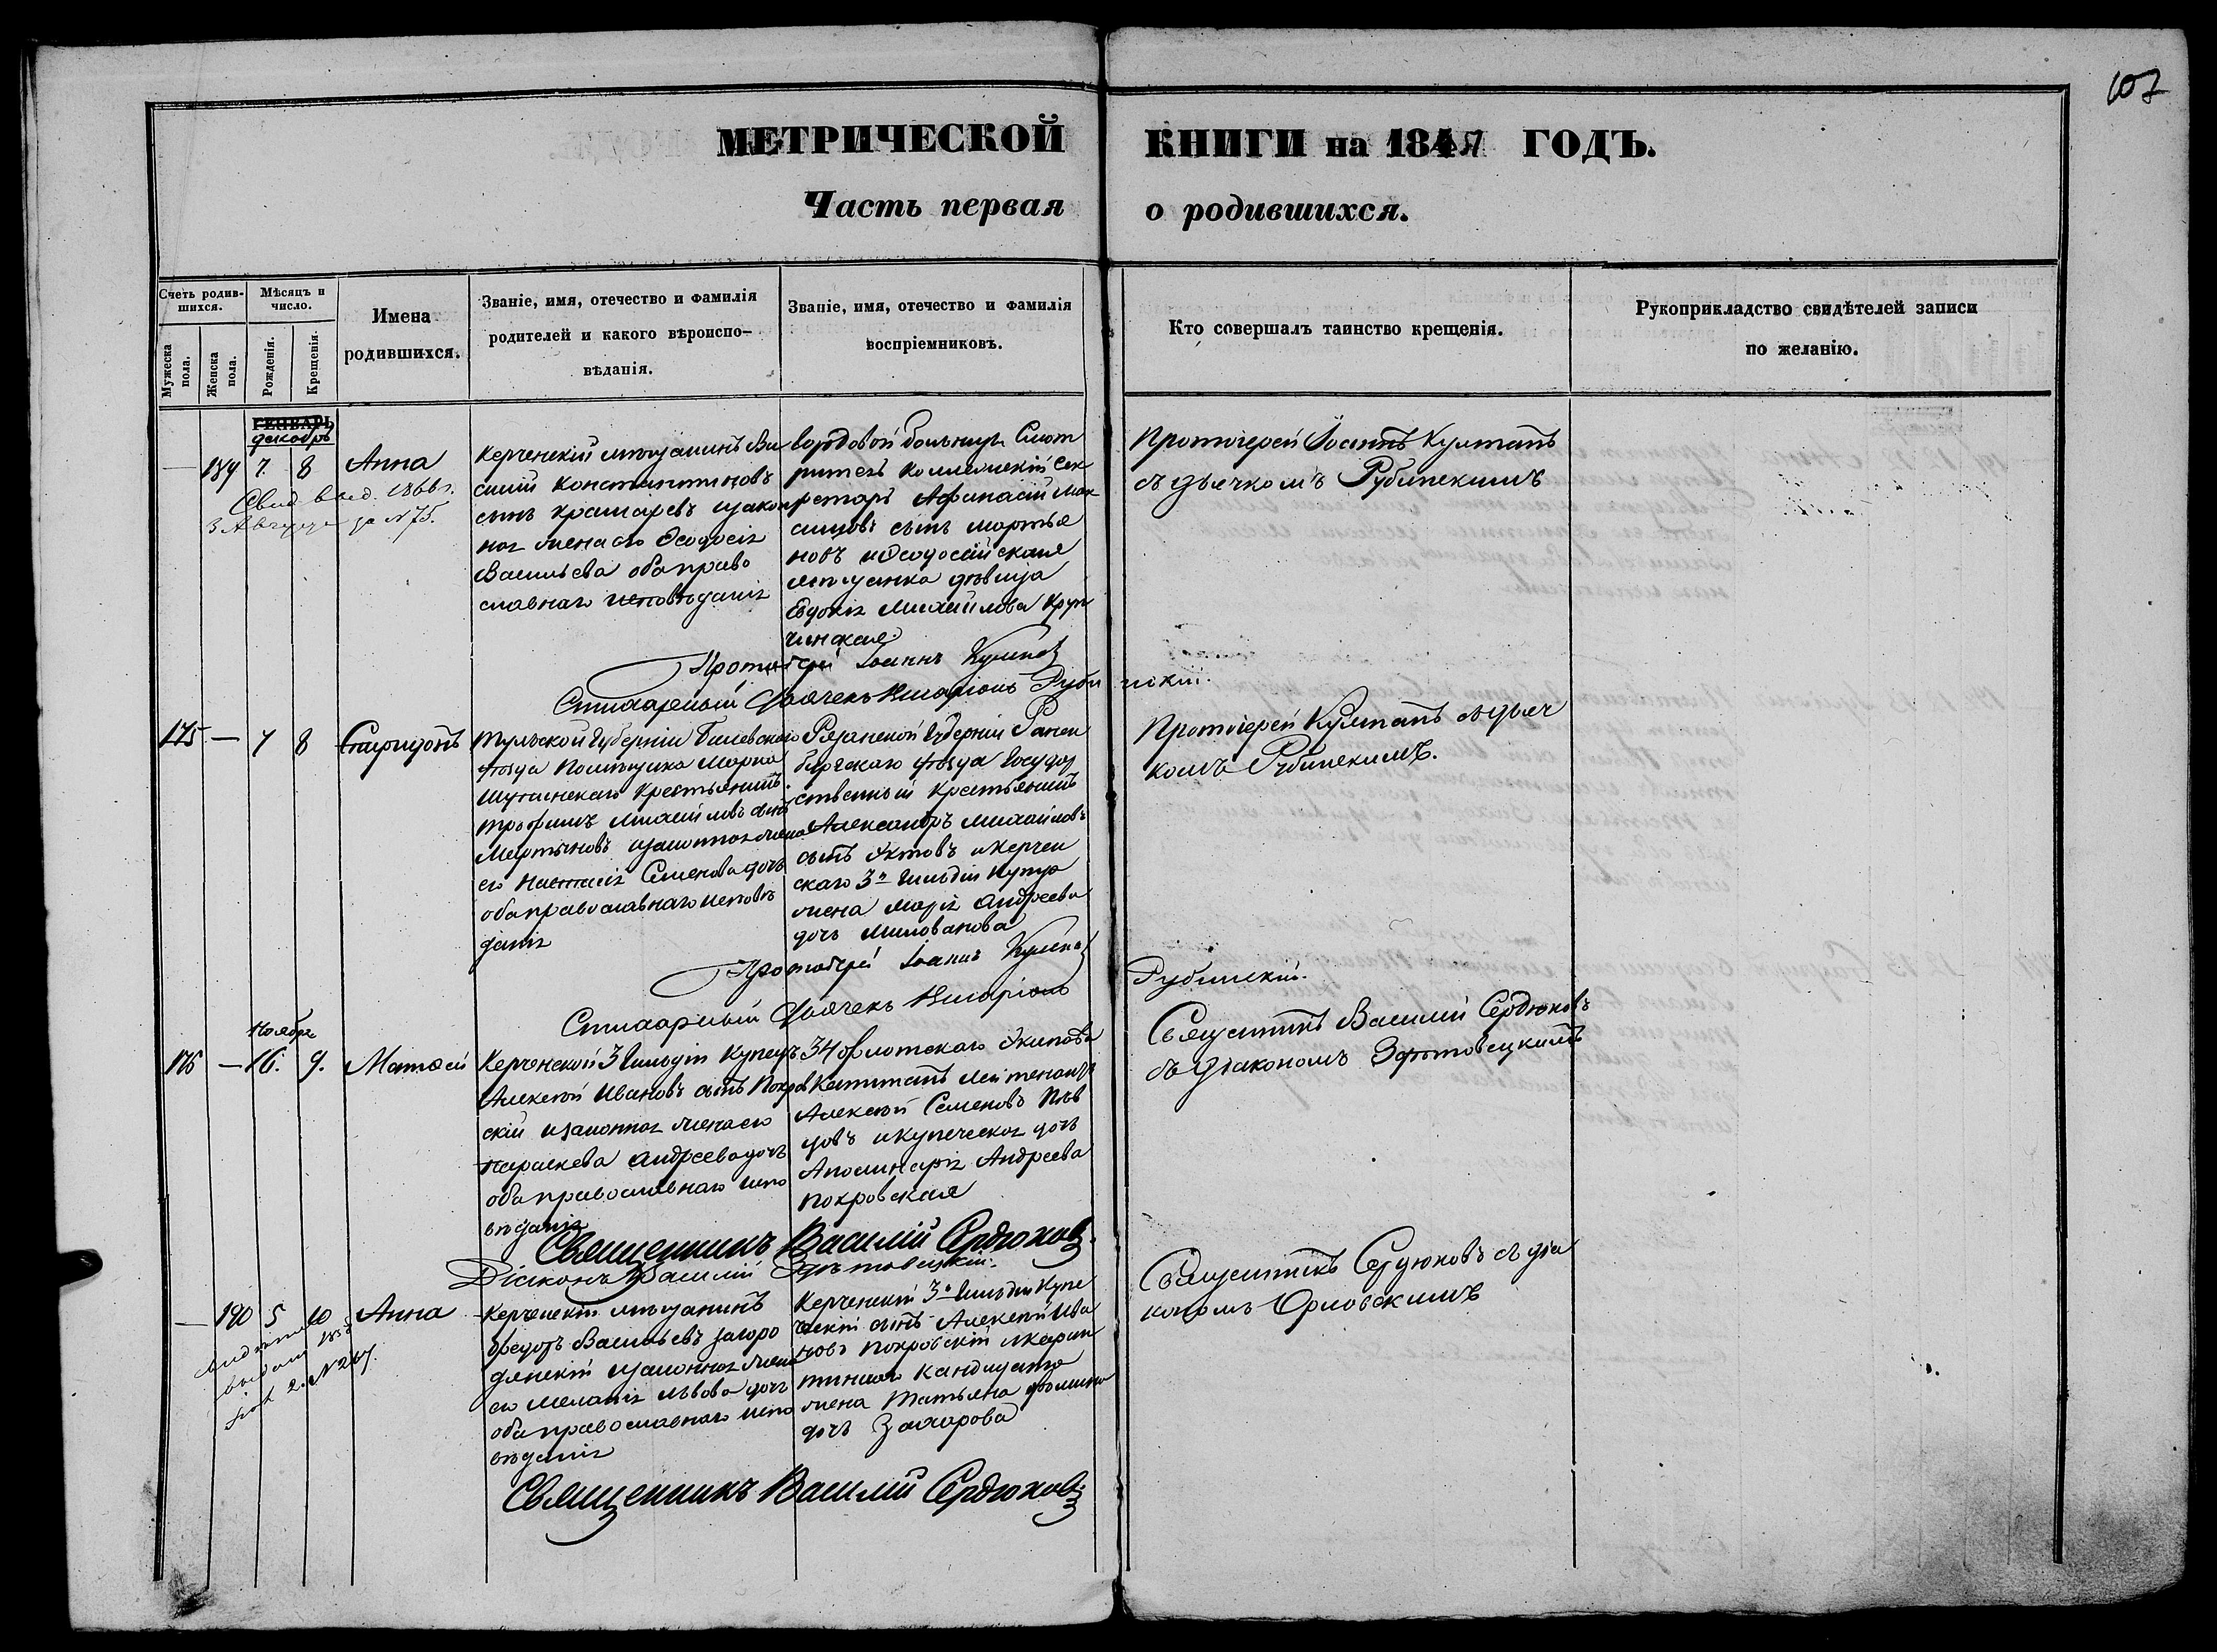 107
МЕТРИЧЕСКОЙ КНИГИ на 1847 ГОДЪ.
Часть первая о родившихся.
Счетъ родив-
шихся.
Мужеска пола.
Женска пола.
Мѣсяцъ и
число.
Рожденія.
Крещенія.
Имена
родившихся.
Званіе, имя, отечество и фамилія
родителей и какого вѣроиспо-
вѣданія.
Званіе, имя, отечество и фамилія
воспріемниковъ.
Кто совершалъ таинство крещенія.
Рукоприкладство свидѣтелей записи
по желанію.
ГЕНВАРЬ
декабрь
— 189 7. 8 Анна
Свид. выд. 1866 г.
3 Августа за N 75.
Керченскій мѣщанинъ Ва
силій Константиновъ
сынъ Крамаревъ и закон
ная жена его Ѳеодосія
Васильева оба право
славнаго исповѣданія
вордовой больницы Смот
ритель Коллежскій Сек
ретарь Афанасій Мак
симовъ сынъ Мартья
новъ и Ѳеодосійская
мѣщанка дѣвица
Евдокія Михайлова Круп
чинская.
Протоіерей Іоаннъ Кумпанъ
съ дьячкомъ Рубинскимъ
Протоіерей Іоаннъ Кумпанъ
Стихарный Дьячекъ Иларіонъ Руби нскій.
175 — 7 8 Спиридонъ
Тульской Губерніи Бѣлевскаго
уѣзда Помѣщика Марка
Шутинскаго Крестьянинъ
Трофимъ Михайловъ сынъ
Мартыновъ и законная жена
его Настасія Семенова дочь
оба православнаго исповѣ
данія
Рязанской Губерніи Ранен
бургскаго уѣзда Государ
ственный Крестьянинъ
Александръ Михайловъ
сынъ Уктовъ и Керчен
скаго 3й Гильдіи Купца
жена Марія Андреева
дочь Милованова
Протоіерей Кумпанъ съ дьяч
комъ Рубинскимъ.
Протоіерей Іоаннъ Кумпанъ
Стихарный Дьячекъ Иларіонъ Рубинскій.
Ноября
176 — 16. 9. Матѳей
Керченской 3 Гильдіи Купецъ
Алексѣй Ивановъ сынъ Покров
скій и законная жена его
Параскева Андреева дочь
оба православнаго испо
вѣданія
34 Флотскаго Экипажа
Капитанъ Лейтенантъ
Алексѣй Семеновъ Пѣв
цовъ и купеческая дочь
Аполинарія Андреева
Покровская
Священникъ Василій Сердюковъ
съ діакономъ
Священникъ Василій Сердюковъ.
Діаконъ Василій
— 190 5 10 Анна
выдано
N 267.
Керченскій мѣщанинъ
Ѳедоръ Васильевъ Загоро
дянскій и законная жена
его Меланія Львова дочь
оба православнаго испо
вѣданія
Керченскій 3й Гильдіи Купе
ческій сынъ Алексѣй Ива
новъ Покровскій и Каран
тиннаго Кандидата
жена Татьяна
дочь Захарова
Священникъ Сердюковъ съ діа
кономъ Орловскимъ
Священникъ Василій Сердюковъ